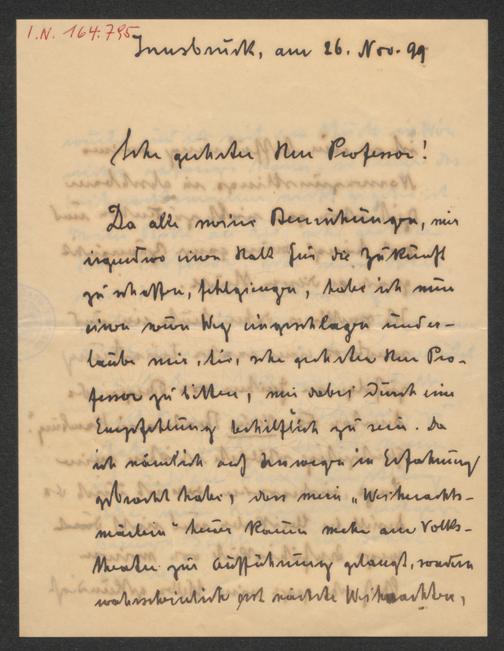 I.N. 164.795
Innsbruck, am 26. Nov. 99
Sehr geehrter Herr Professor!
Da alle meine Bemühungen, mir
irgendwo einen Halt für die Zukunft
zu schaffen, fehlgiengen, habe ich nun
einen neuen Weg eingeschlagen und er-
laube mir, Sie, sehr geehrter Herr Pro-
fessor zu bitten, mir dabei durch eine
Empfehlung behilflich zu sein. Da
ich nämlich auf Umwegen in Erfahrung
gebracht habe, dass mein „Weihnachts-
märlein" heuer kaum mehr am Volks-
theater zur Aufführung gelangt, sondern
wahrscheinlich erst nächste Weihnachten,